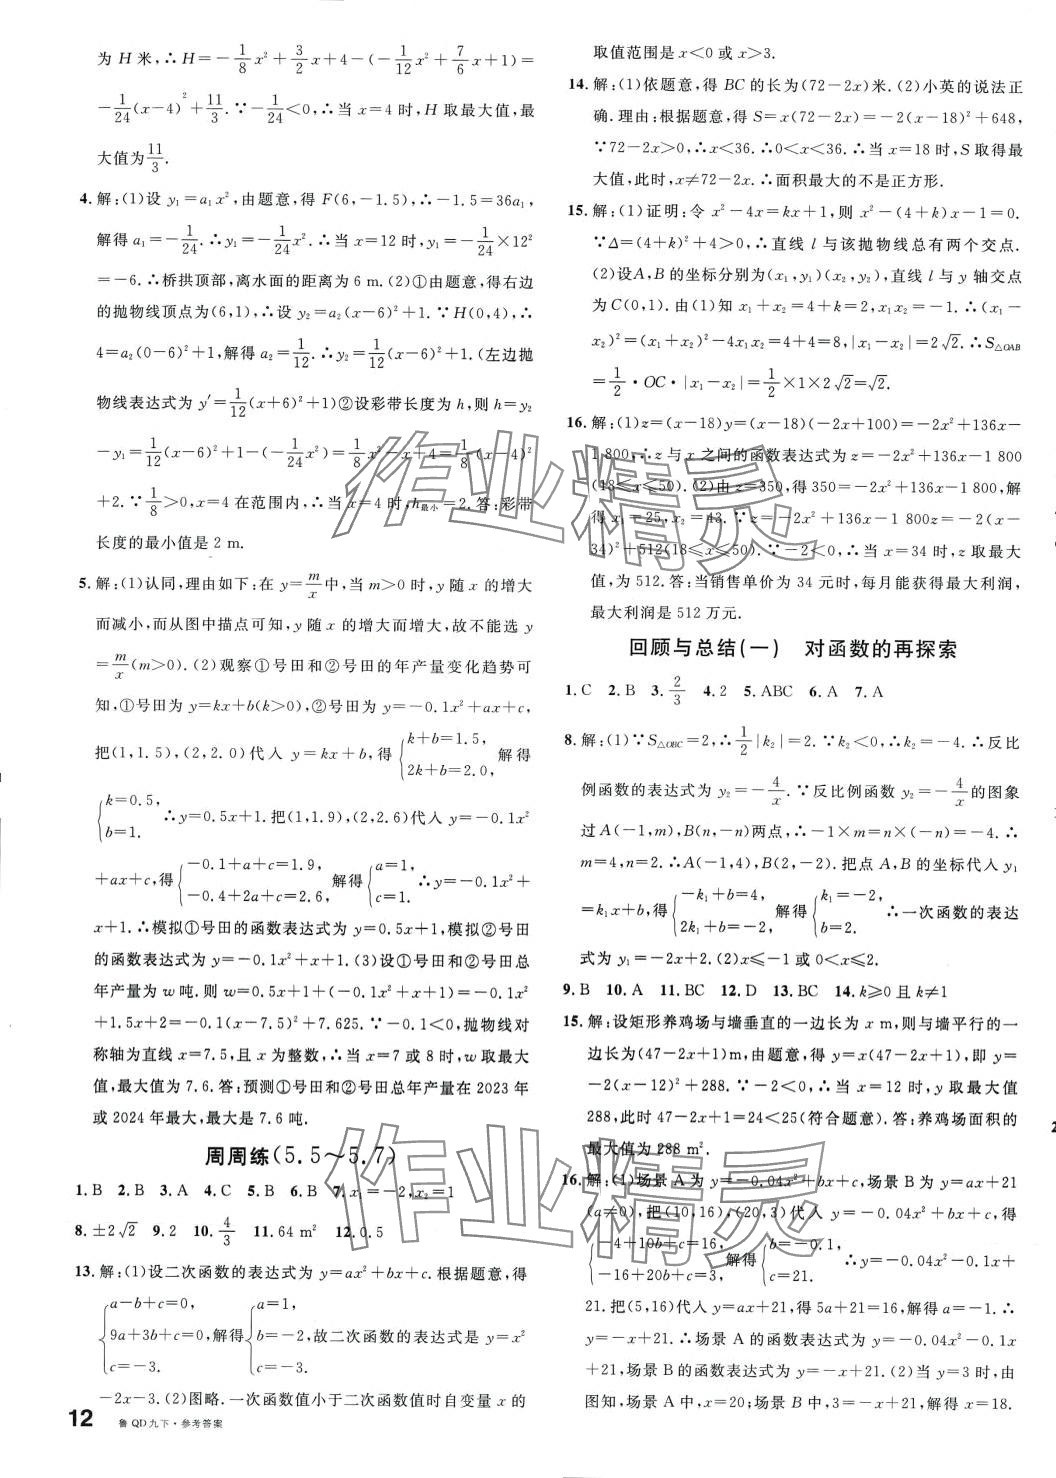 为 H 米,∴H=-1/8x²+3/2x+4-(-1/12x²+7/6x+1)=
-1/24(x-4)²+11/3.∵-1/24<0,∴当 x=4 时,H 取最大值,最
大值为11/3.
4.解:(1)设 y₁=a₁x²,由题意,得 F(6,-1.5),∴-1.5=36a₁,
解得 a₁=-1/24.∴y₁=-1/24x².∴当 x=12 时,y₁=-1/24×12²
=-6.∴桥拱顶部,离水面的距离为 6 m.(2)①由题意,得右边
的抛物线顶点为(6,1),∴设 y₂=a₂(x-6)²+1.∵H(0,4),∴
4=a₂(0-6)²+1,解得 a₂=1/12.∴y₂=1/12(x-6)²+1.(左边抛
物线表达式为 y′=1/12(x+6)²+1)②设彩带长度为 h,则 h=y₂
-y₁=1/12(x-6)²+1-(-1/24x²)=1/8x²-x+4=1/8(x-4)²
+2.∵1/8>0,x=4 在范围内,∴当 x=4 时,h最小=2.答:彩带
长度的最小值是 2 m.
5.解:(1)认同,理由如下:在 y=m/x中,当 m>0 时,y 随 x 的增大
而减小,而从图中描点可知,y 随 x 的增大而增大,故不能选 y
=m/x(m>0).(2)观察①号田和②号田的年产量变化趋势可
知,①号田为 y=kx+b(k>0),②号田为 y=-0.1x²+ax+c,
把(1,1.5),(2,2.0)代入 y=kx+b,得{k+b=1.5, 2k+b=2.0, 解得
{k=0.5, b=1. ∴y=0.5x+1.把(1,1.9),(2,2.6)代入 y=-0.1x²
+ax+c,得{-0.1+a+c=1.9, -0.4+2a+c=2.6, 解得{a=1, c=1. ∴y=-0.1x²+
x+1.∴模拟①号田的函数表达式为 y=0.5x+1,模拟②号田
的函数表达式为 y=-0.1x²+x+1.(3)设①号田和②号田总
年产量为 w 吨.则 w=0.5x+1+(-0.1x²+x+1)=-0.1x²
+1.5x+2=-0.1(x-7.5)²+7.625.∵-0.1<0,抛物线对
称轴为直线 x=7.5,且 x 为整数,∴当 x=7 或 8 时,w 取最大
值,最大值为 7.6.答:预测①号田和②号田总年产量在 2023 年
或 2024 年最大,最大是 7.6 吨.
周周练(5.5～5.7)
1.B 2.B 3.A 4.C 5.B 6.B 7.x₁=-2,x₂=1
8.±2√2 9.2 10.4/3 11.64 m² 12.0.5
13.解:(1)设二次函数的表达式为 y=ax²+bx+c.根据题意,得
{a-b+c=0, 9a+3b+c=0, c=-3. 解得{a=1, b=-2, c=-3. 故二次函数的表达式是 y=x²
-2x-3.(2)图略.一次函数值小于二次函数值时自变量 x 的
12 鲁 QD 九下·参考答案
取值范围是 x<0 或 x>3.
14.解:(1)依题意,得 BC 的长为(72-2x)米.(2)小英的说法正
确.理由:根据题意,得 S=x(72-2x)=-2(x-18)²+648,
∵72-2x>0,∴x<36.∴0<x<36.∴当 x=18 时,S 取得最
大值,此时,x≠72-2x.∴面积最大的不是正方形.
15.解:(1)证明:令 x²-4x=kx+1,则 x²-(4+k)x-1=0.
∵Δ=(4+k)²+4>0,∴直线 l 与该抛物线总有两个交点.
(2)设A,B 的坐标分别为(x₁,y₁)(x₂,y₂),直线 l 与 y 轴交点
为 C(0,1).由(1)知 x₁+x₂=4+k=2,x₁x₂=-1.∴(x₁-
x₂)²=(x₁+x₂)²-4x₁x₂=4+4=8,|x₁-x₂|=2√2.∴S△OAB
=1/2·OC·|x₁-x₂|=1/2×1×2√2=√2.
16.解:(1)z=(x-18)y=(x-18)(-2x+100)=-2x²+136x-
1 800,∴z 与 x 之间的函数表达式为 z=-2x²+136x-1 800
(18≤x≤50).(2)由 z=350,得 350=-2x²+136x-1 800,解
得 x₁=25,x₂=43.∵z=-2x²+136x-1 800=-2(x-
34)²+512(18≤x≤50).∵-2<0,∴当 x=34 时,z 取最大
值,为 512.答:当销售单价为 34 元时,每月能获得最大利润,
最大利润是 512 万元.
回顾与总结(一) 对函数的再探索
1.C 2.B 3.2/3 4.2 5.ABC 6.A 7.A
8.解:(1)∵S△OBC=2,∴1/2|k₂|=2.∵k₂<0,∴k₂=-4.∴反比
例函数的表达式为 y₂=-4/x.∵反比例函数 y₂=-4/x的图象
过A(-1,m),B(n,-n)两点,∴-1×m=n×(-n)=-4.∴
m=4,n=2.∴A(-1,4),B(2,-2).把点 A,B 的坐标代入 y₁
=k₁x+b,得{-k₁+b=4, 2k₁+b=-2, 解得{k₁=-2, b=2. ∴一次函数的表达
式为 y₁=-2x+2.(2)x≤-1 或 0<x≤2.
9.B 10.A 11.BC 12.D 13.BC 14.k≥0 且 k≠1
15.解:设矩形养鸡场与墙垂直的一边长为 x m,则与墙平行的一
边长为(47-2x+1)m,由题意,得 y=x(47-2x+1),即 y=
-2(x-12)²+288.∵-2<0,∴当 x=12 时,y 取最大值
288,此时 47-2x+1=24<25(符合题意).答:养鸡场面积的
最大值为 288 m².
16.解:(1)场景 A 为 y=-0.04x²+bx+c,场景 B 为 y=ax+21
(a≠0),把(10,16),(20,3)代入 y=-0.04x²+bx+c,得
{-4+10b+c=16, -16+20b+c=3, 解得{b=-0.1, c=21. ∴y=-0.04x²-0.1x+
21.把(5,16)代入 y=ax+21,得 5a+21=16,解得 a=-1.∴
y=-x+21.∴场景 A 的函数表达式为 y=-0.04x²-0.1x
+21,场景 B 的函数表达式为 y=-x+21.(2)当 y=3 时,由
图知,场景 A 中,x=20,场景 B 中,-x+21=3,解得 x=18.
作业精灵
作业精灵